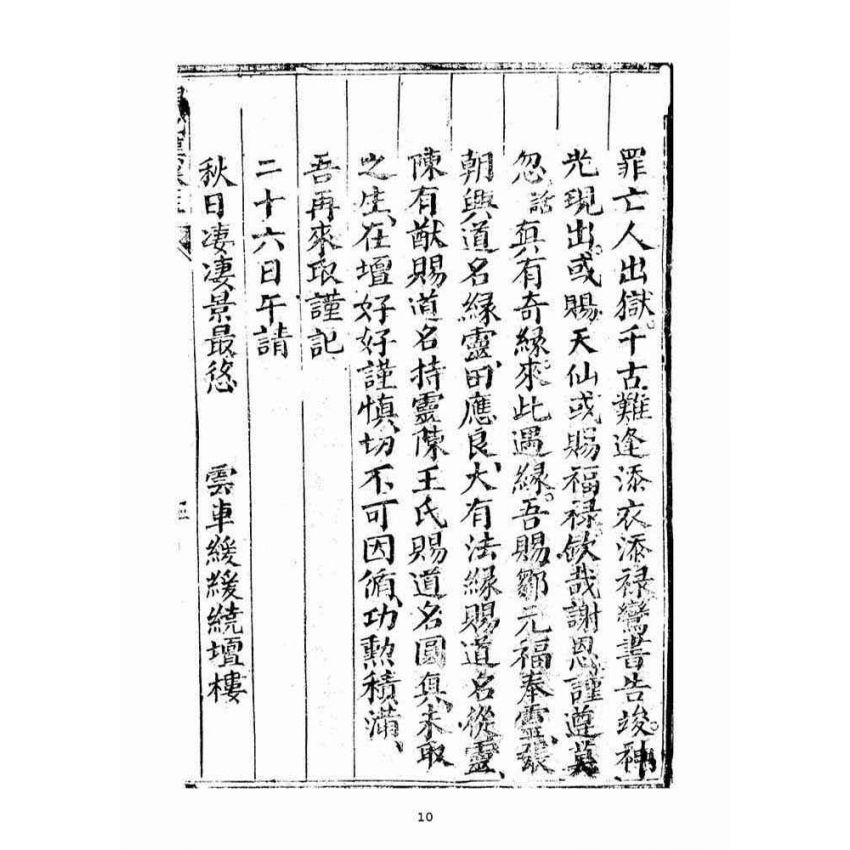 罪亡人出獄。千古難逢添衣添祿鸞書告竣。神
光現出。或賜天仙或賜福祿欽哉謝恩謹遵莫
忽、話、眞有奇緣來此遇緣。吾賜鄒元福奉靈、張
朝興道名緣靈、田應良、大有法緣賜道名從靈、
陳有猷賜道名持靈陳王氏賜道名圓眞、未取
之生、在壇好好謹慎、切不可因循、功勲積滿、
吾再來取謹記
二十六日午請
秋日凄凄景最悠　雲車緩緩繞壇樓
三
10